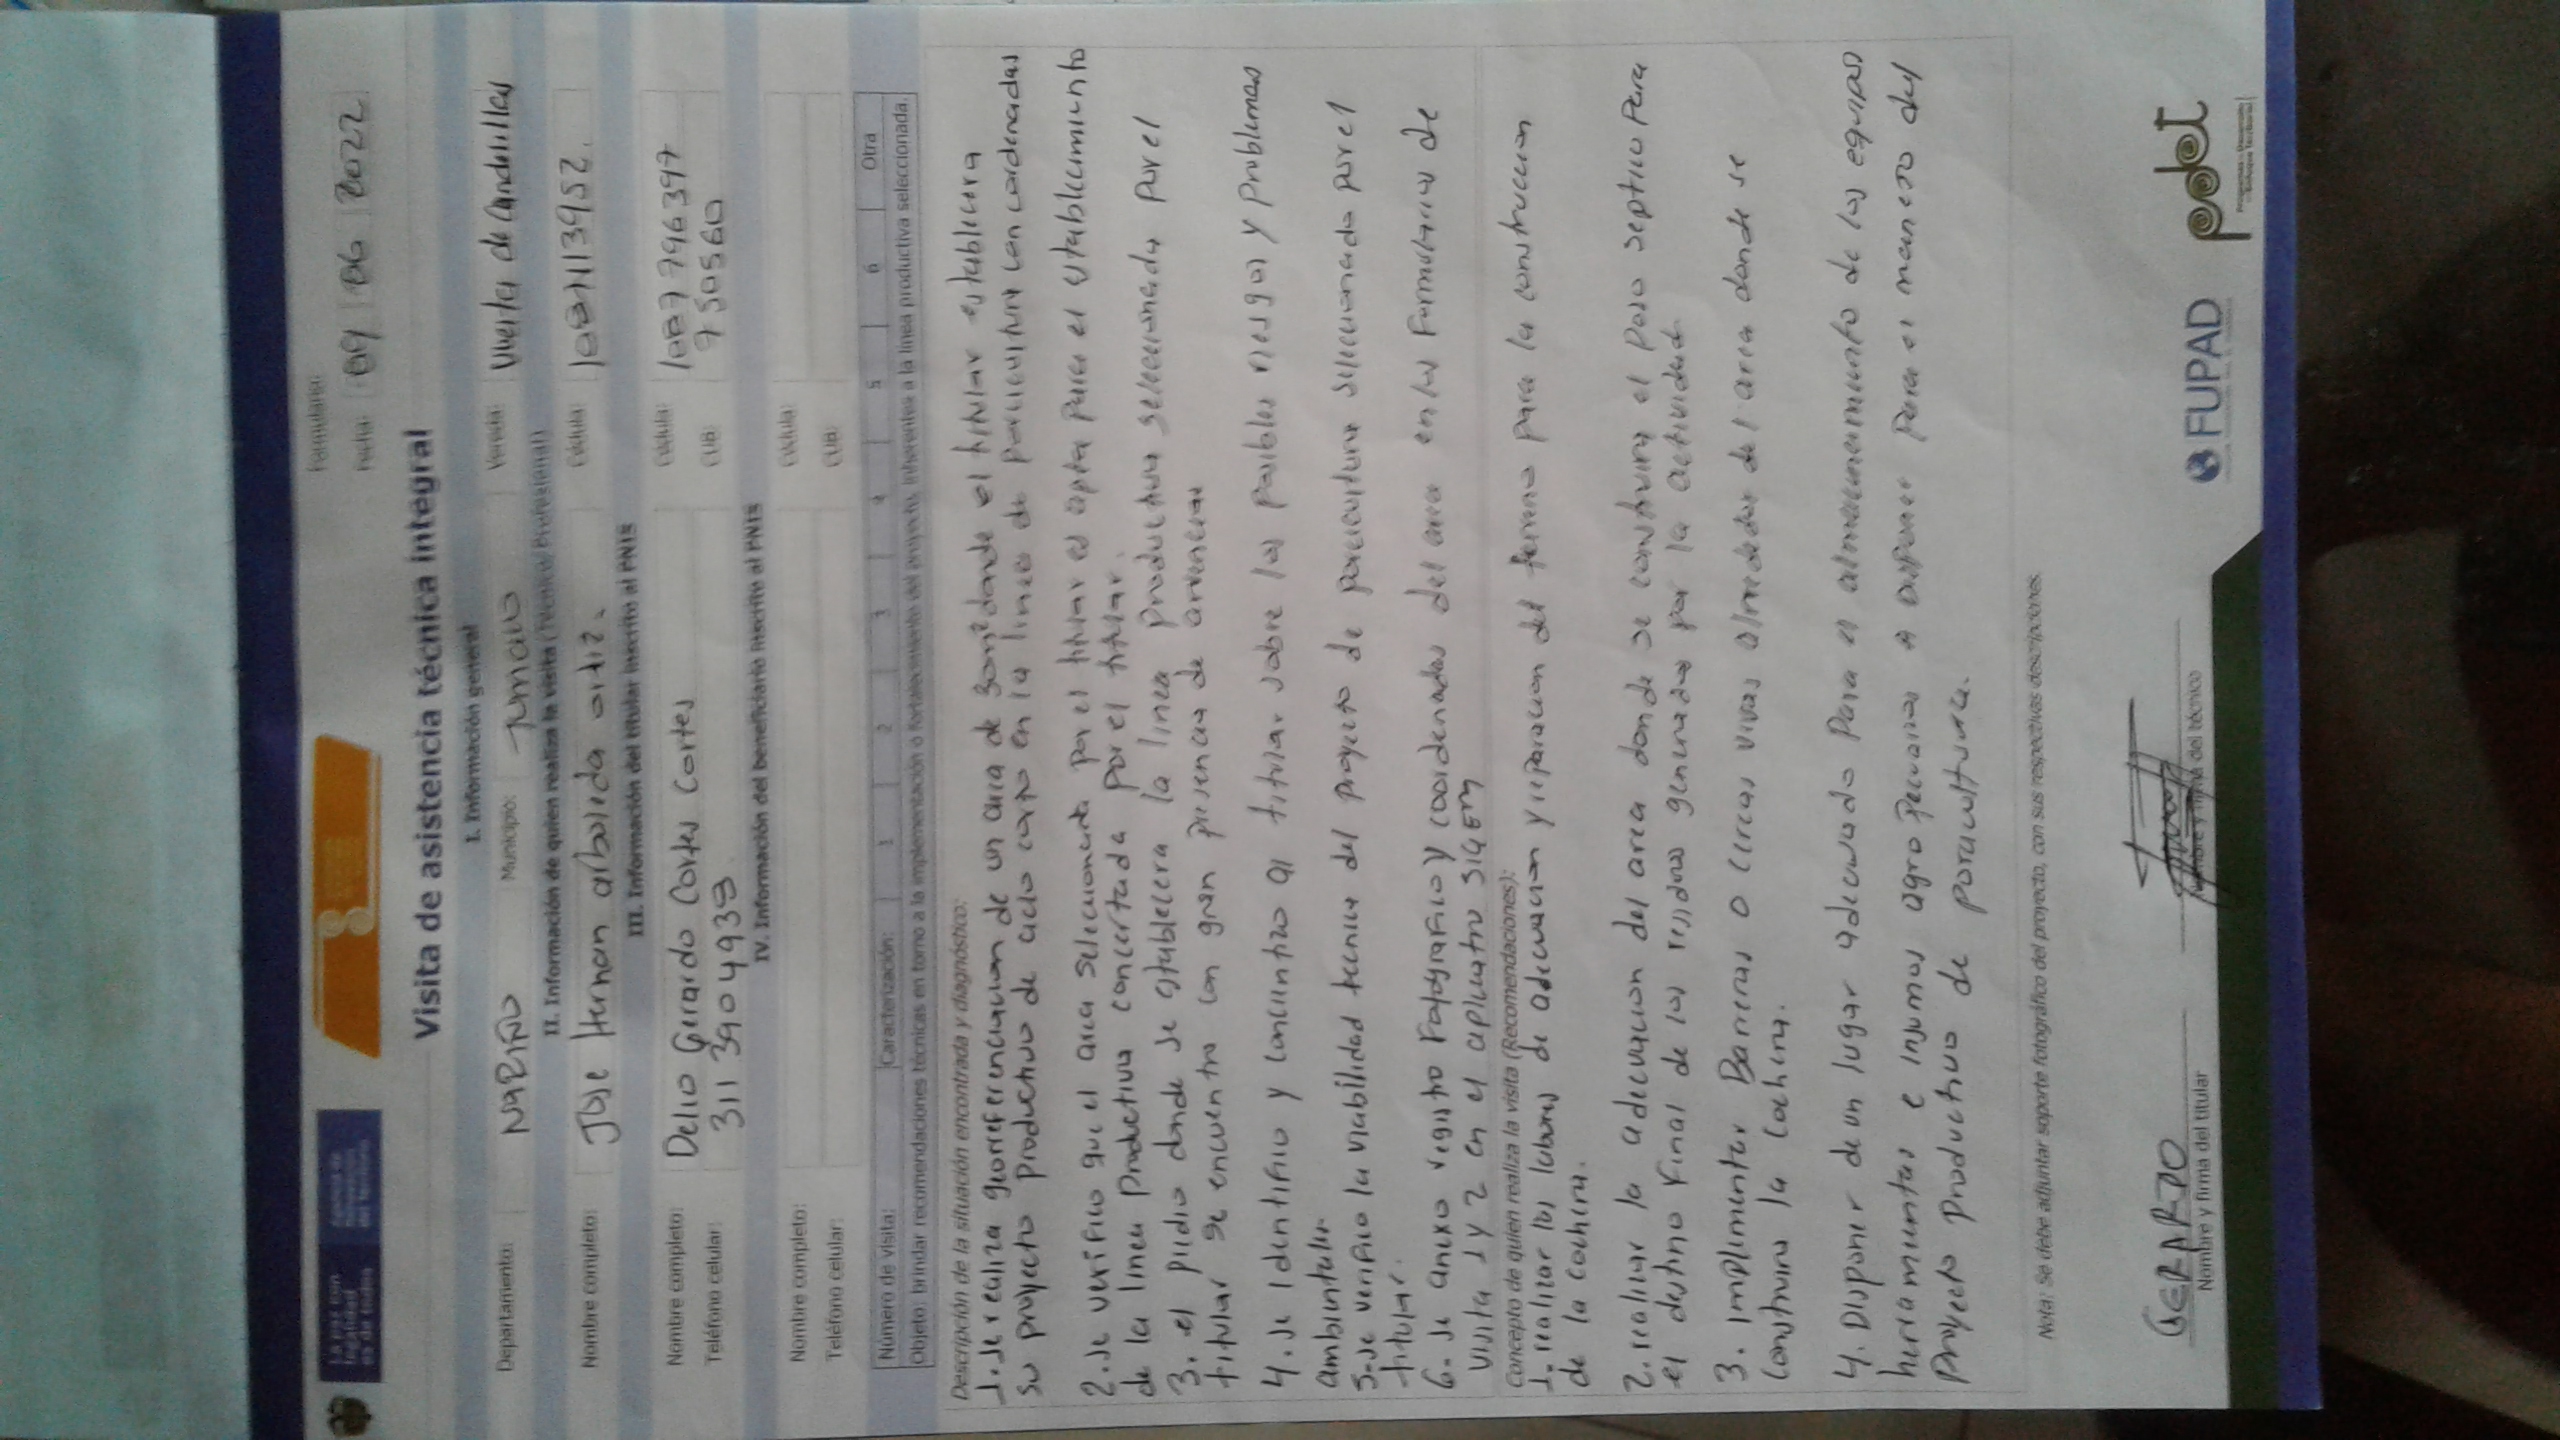 La paz con
legalidad
es de todos
Agencia de
Renovación
del Territorio
Formulario:
Fecha: 09 06 2022
Visita de asistencia técnica integral
I. Información general
Departamento: NARIÑO Municipio: TUMACO Vereda: Vuelta de Candelillas
II. Información de quien realiza la visita (Técnico/Profesional)
Nombre completo: Jose Hernan arboleda ortiz. Cédula:
III. Información del titular inscrito al PNIS
Nombre completo: Delio Gerardo Cortes Cortes Cédula: 1087796397
Teléfono celular: 3113904939 CUB: 950560
IV. Información del beneficiario inscrito al PNIS
Nombre completo: Cédula:
Teléfono celular: CUB:
Número de visita: Caracterización: 1 2 3 4 5 6 Otra
Objeto: brindar recomendaciones técnicas en torno a la implementación o fortalecimiento del proyecto, inherentes a la línea productiva seleccionada.
Descripción de la situación encontrada y diagnóstico:
1. se realiza georreferenciacion de un area de donde el titular establecera
su proyecto productivo de ciclo corto en la linea de porcicultura con cordenadas
2. se verifico que el area seleccionada por el titular es apta para el establecimiento
de la linea productiva concertada por el titular.
3. el pidio donde se establecera la linea productiva seleccionada por el
titular se encuentra con gran presencia de arvences
4. se identifico y concientizo al titular sobre los posibles riesgos y problemas
ambientales.
5. se verifico la viabilidad tecnica del proyecto de porcicultura seleccionado por el
titular.
6. se anexo registro fotografico y coordenadas del area en los formularios de
visita 1 y 2 en el aplicativo SIGEM
Concepto de quien realiza la visita (Recomendaciones):
1. realizar las labores de adecuacion y reparacion del terreno para la construccion
de la cochera.
2. realizar la adecuacion del area donde se construira el poso septico para
el destino final de los residuos generados por la actividad.
3. implementar Barreras o cercas vivas alrededor del area donde se
construira la cochera.
4. Disponer de un lugar adecuado para el almacenamiento de los equipos
herramientas e insumos agropecuarios a disponer para el manejo del
Proyecto Productivo de porcicultura.
Nota: Se debe adjuntar soporte fotográfico del proyecto, con sus respectivas descripciones.
GERARDO
Nombre y firma del titular
Nombre y firma del técnico
FUPAD
pdet
Programas de Desarrollo
con Enfoque Territorial